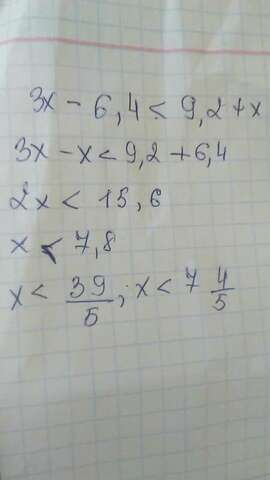 3x - 6,4 < 9,2 + x
3x - x < 9,2 + 6,4
2x < 15,6
x < 7,8
x < 39/5 ; x < 7 4/5